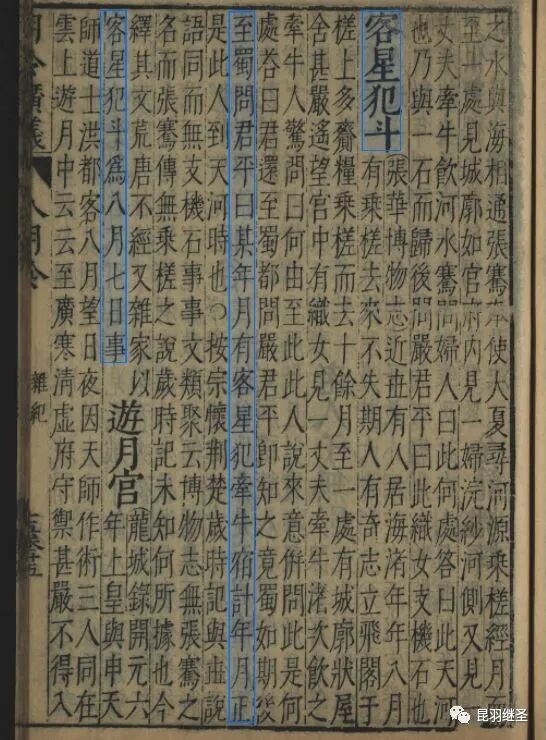 之水與海相通張騫奉使大夏尋河源乘槎經月而
至一處見城廓如官府內見一婦浣紗河側又見
丈夫牽牛飲河水騫問婦人曰此何處答曰此天河
也乃與一石而歸後問嚴君平曰此織女支機石也
客星犯斗
張華博物志近世有人居海渚年年八月
有乘槎去來不失期人有奇志立飛閣于
槎上多齎糧乘槎而去十餘月至一處有城廓狀屋
舍甚嚴遙望宮中有織女見一丈夫牽牛渚次飲之
牽牛人驚問曰何由至此此人說來意併問此是何
處答曰君還至蜀都問嚴君平即知之竟蜀如期後
至蜀問君平曰某年月有客星犯牽牛宿計年月正
是此人到天河時也○按宗懷荆楚歲時記與世說
語同而無支機石事事文類聚云博物志無張騫之
名而張騫傳無乘槎之說歲時記未知何所據也今
繹其文荒唐不經又雜家以
客星犯斗爲八月七日事
遊月宮
龍城錄開元六
年上皇與申天
師道士洪都客八月望日夜因天師作術三人同在
雲上遊月中云云至廣寒清虛府守禦甚嚴不得入
月令廣義
八月令
雜紀
昆羽继圣